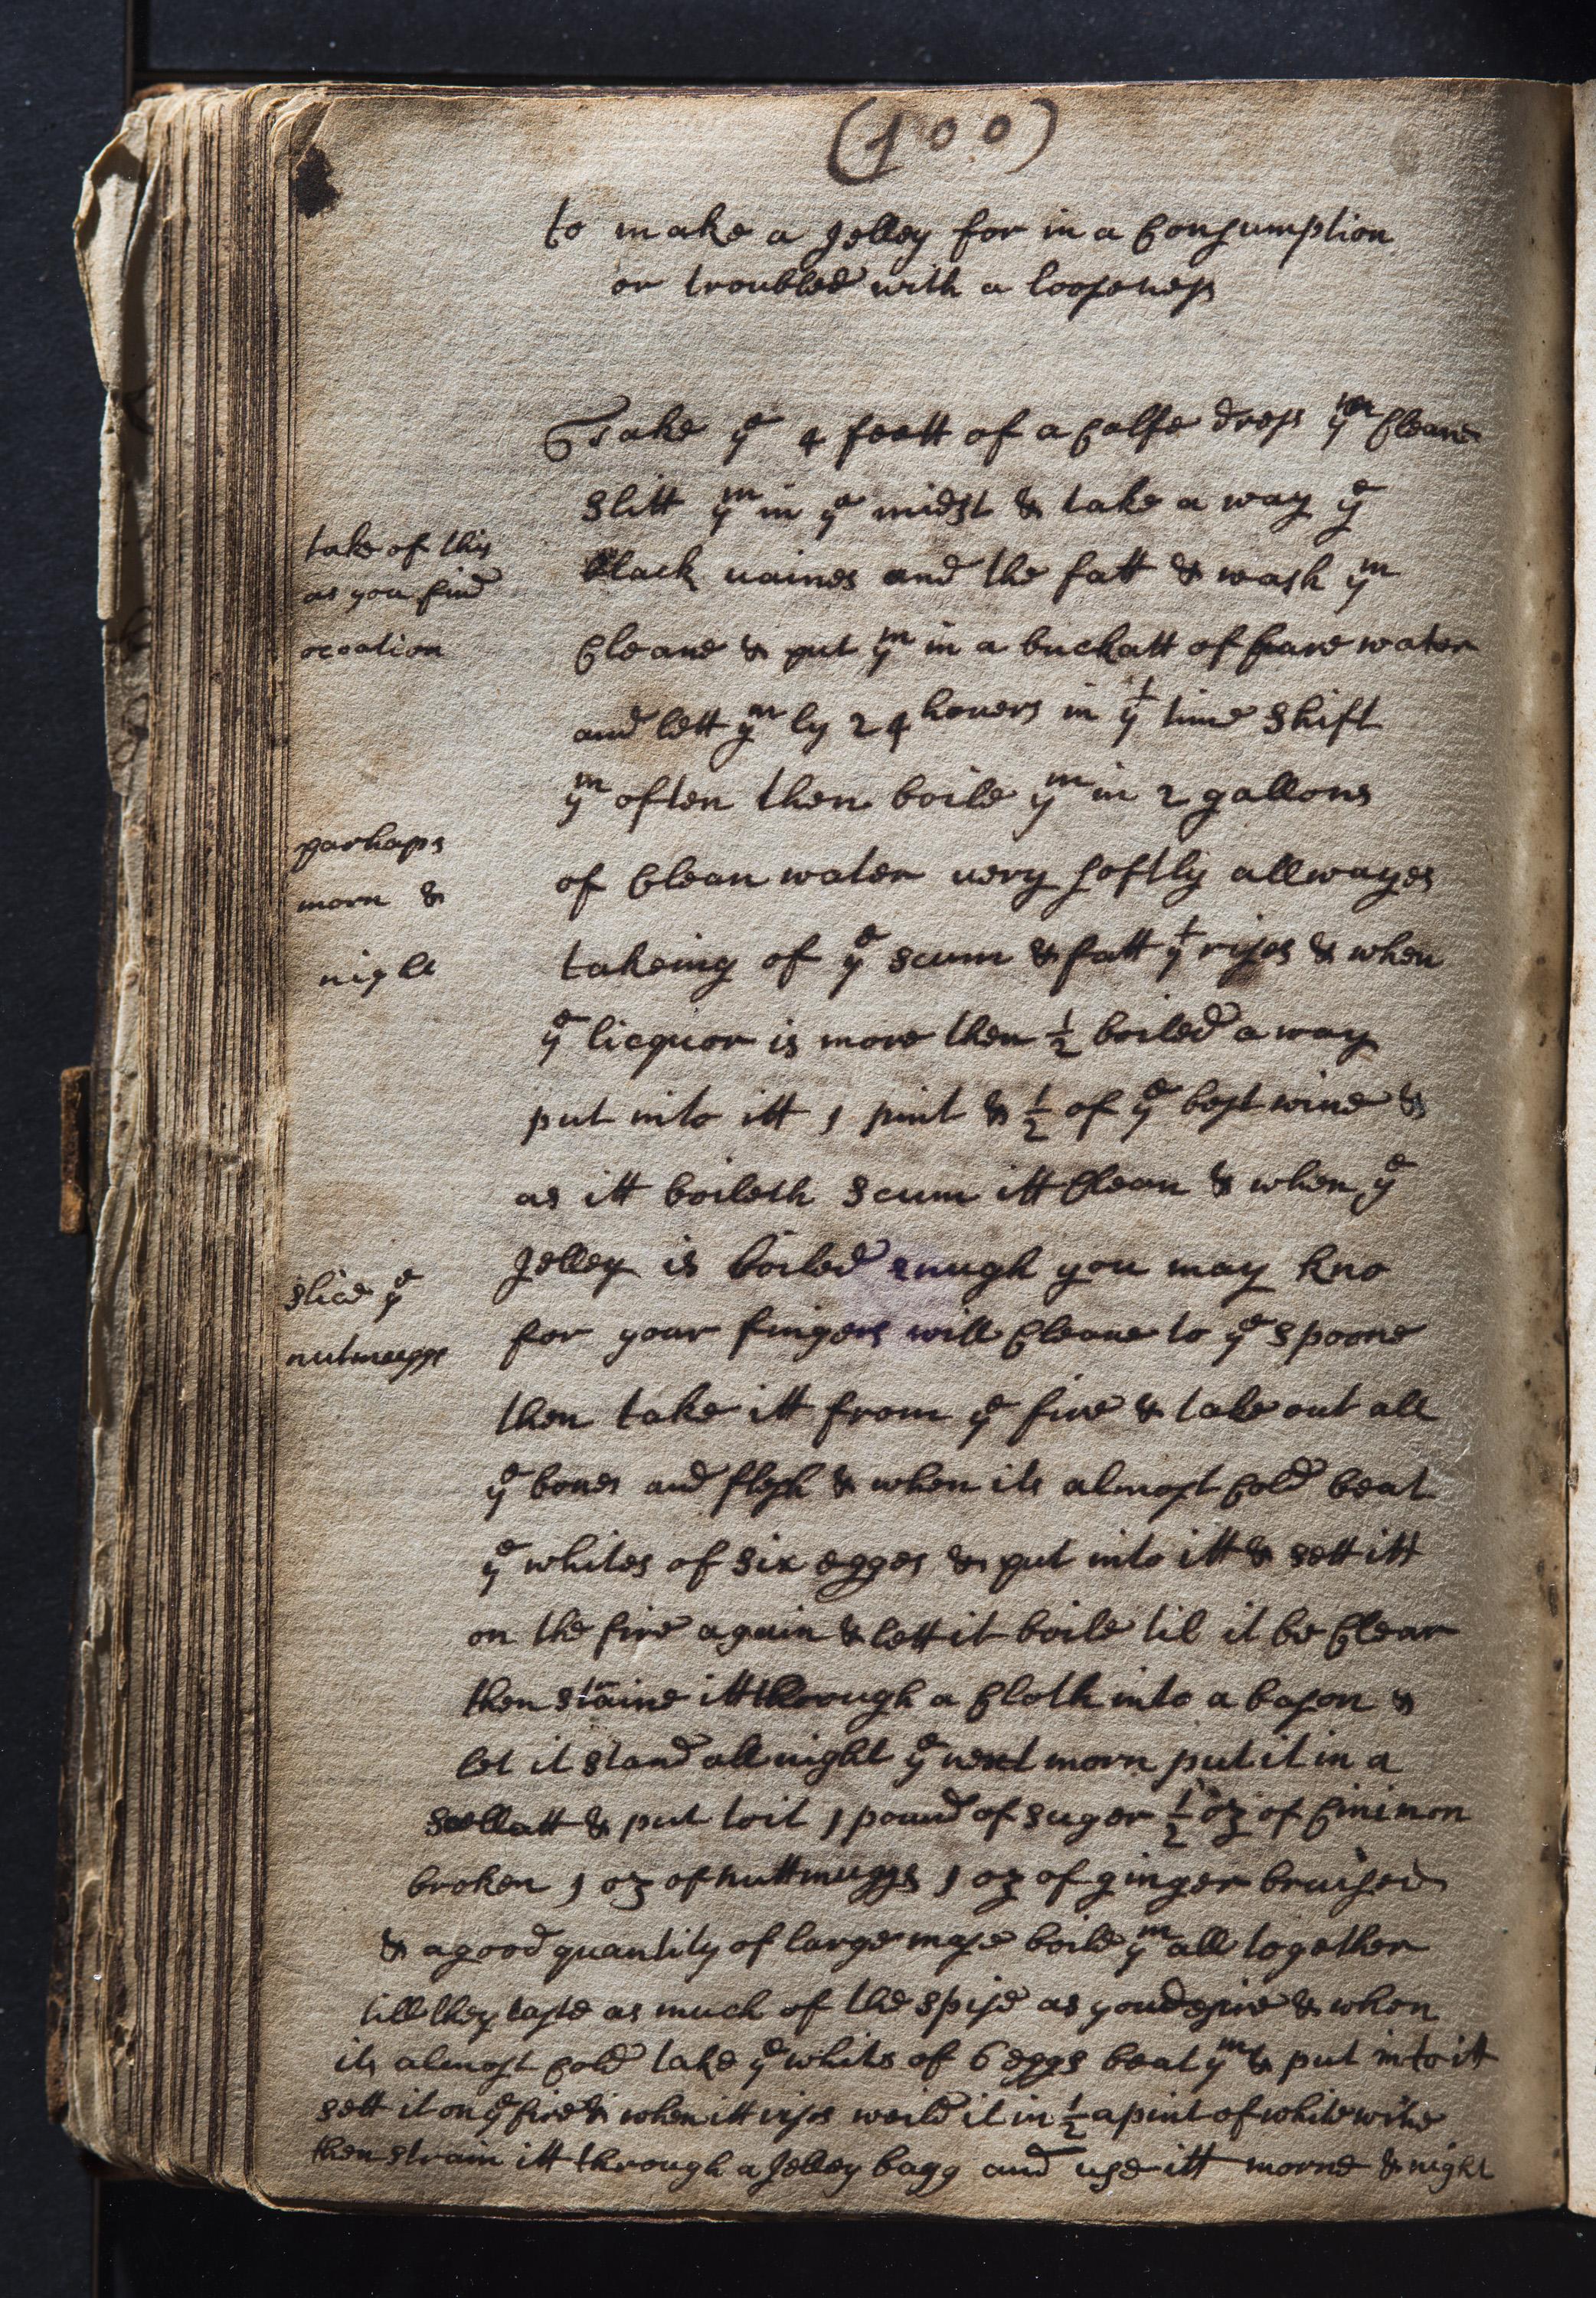 (100)
to make a Jelley for in a Consumption
or troubled with a looseness
Take yᵉ 4 feett of a Calfe dress yᵐ Cleane
slitt yᵐ in yᵉ midst & take a way yᵉ
black vaines and the fatt & wash yᵐ
Cleane & put yᵐ in a buckatt of faire water
and lett yᵐ ly 24 houers in yᵗ time shift
yᵐ often then boile yᵐ in 2 gallons
of Clean water very softly allwayes
takeing of yᵉ scum & fatt yᵗ rises & when
yᵉ licquor is more then ½ boiled a way
put into itt 1 pint & ½ of yᵉ best wine &
as itt boileth scum itt Clean & when yᵉ
Jelley is boiled enugh you may kno
for your fingers will Cleaue to yᵉ spoone
then take itt from yᵉ fire & take out all
yᵉ bones and flesh & when its almost Cold beat
yᵉ whites of six egges & put into itt & sett itt
on the fire again & lett it boile til it be Clear
then straine itt through a Cloth into a bason &
let it stand all night yᵉ next morn put it in a
scellatt & put toit 1 pound of suger ½ oz of Cinimon
broken 1 oz of nuttmuggs 1 oz of ginger bruised
& a good quantity of large mase boile yᵐ all together
till they taste as much of the spise as you desire & when
its almost Cold take yᵉ whits of 6 eggs beat yᵐ & put into it
sett it on yᵉ fire & when itt rises weild it in ½ a pint of white wine
then strain itt through a Jelley bagg and use itt morne & night
take of this
as you find
occation
parhaps
morn &
night
slice yᵉ
nutmuggs